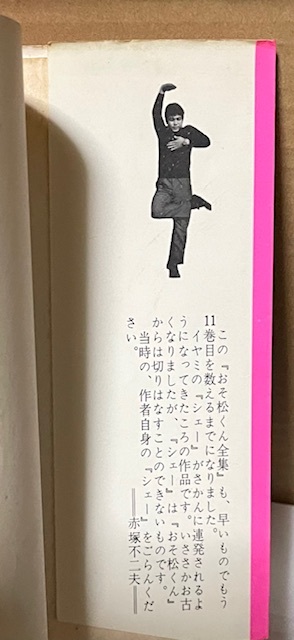 この『おそ松くん全集』も、早いものでもう
11巻目を数えるまでになりました。
イヤミの『シェー』がさかんに連発されるよ
うになってきたころの作品です。いささかお古
くなりましたが、『シェー』は『おそ松くん』
からは切りはなすことのできないものです。
当時の、作者自身の『シェー』をごらんくだ
さい。
――赤塚不二夫――